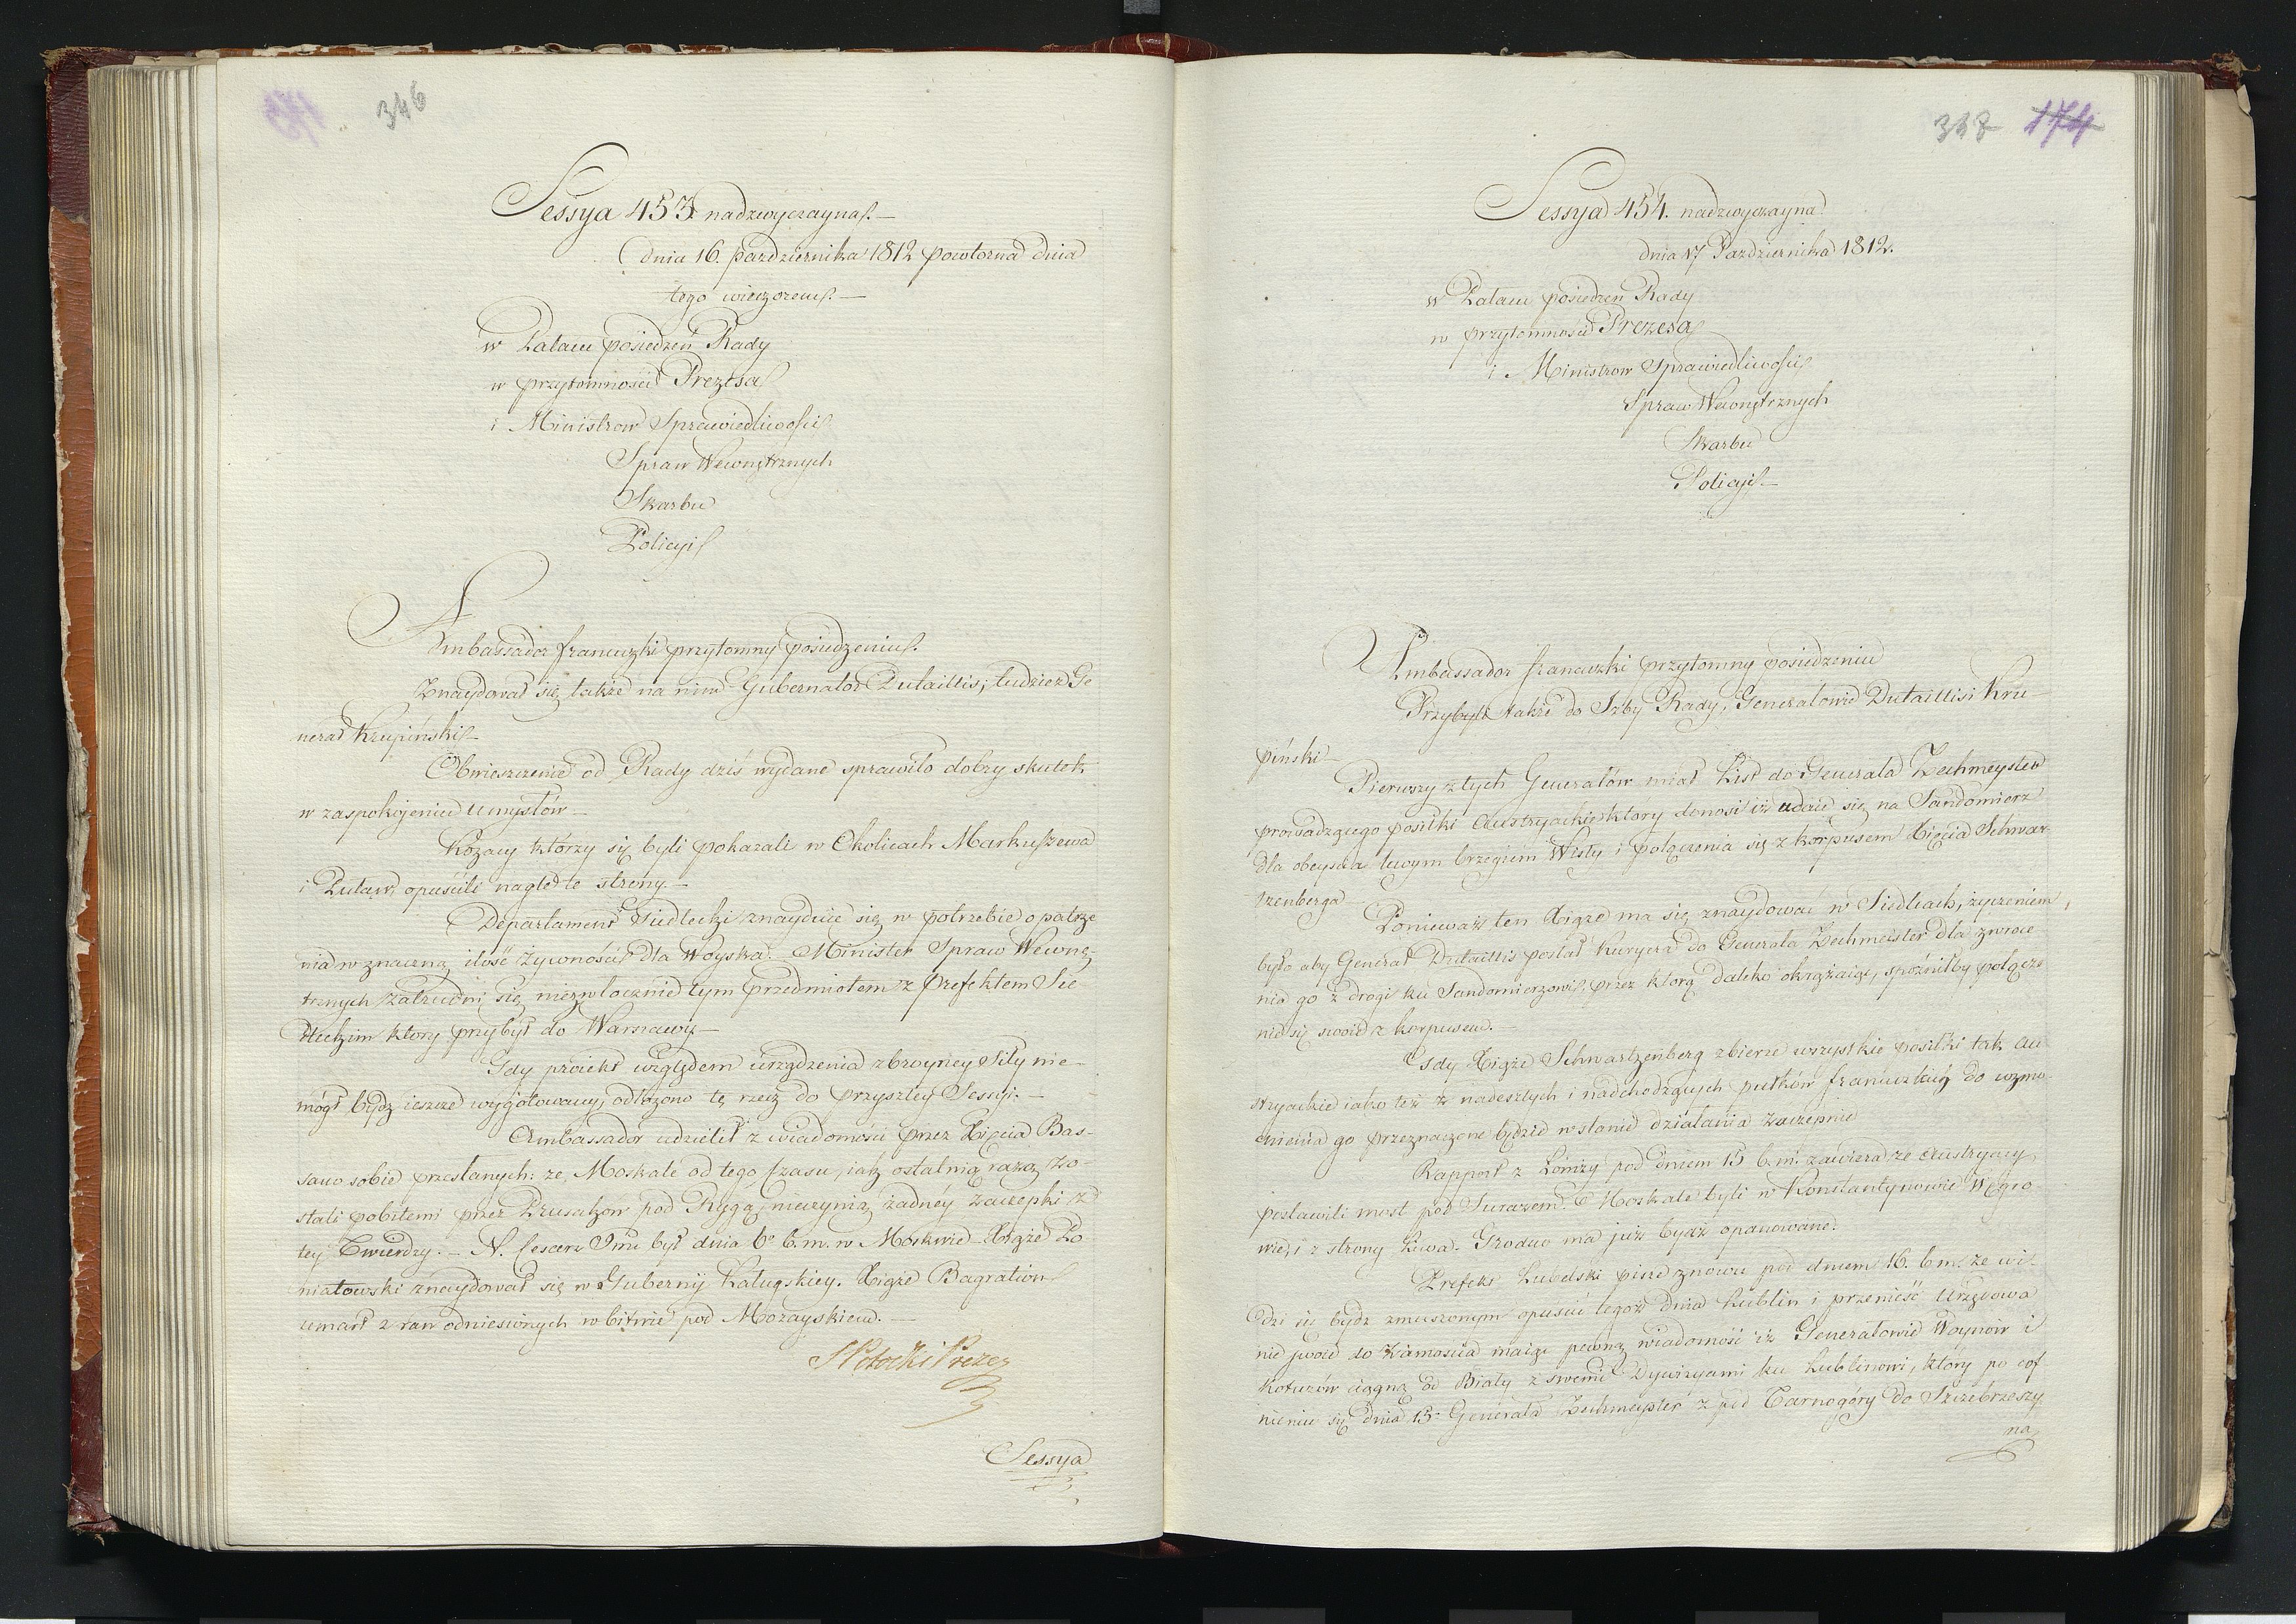 346
Sessya 453. nadzwyczayna.—
dnia 16. pazdziernika 1812 powtorna dnia
tego wieczorem.—
w Pałacu posiedzeń Rady
w przytomności Prezesa
i Ministrow Sprawiedliwości
Spraw Wewnętrznych
Skarbu
Policyi
Ambassador francuzki przytomny posiedzeniu.
Znaydował się także na nim Gubernator Dutaillis, tudzież Ge
nerał Krupiński—
Obwieszczenie od Rady dziś wydane sprawiło dobry skutek
w zaspokojeniu umysłów—
Kozacy którzy się byli pokazali w Okolicach Markuszewa
i Puław, opuścili nagle te strony.—
Departament Siedlecki znayduie się w potrzebie opatrze
nia w znaczną ilość żywności dla Woyska. Minister Spraw Wewnę-
trznych zatrudni się niezwłocznie tym przedmiotem z Prefektem Sie
dleckim ktory przybył do Warszawy—
Gdy proiekt względem urządzenia zbroyney Siły nie
mógł bydz ieszcze wygotowany, odłożono tę rzecz do przyszłey Sessyi.—
Ambassador udzielił z wiadomości przez Xięcia Bas-
sano sobie przesłanych: ze, Moskale od tego czasu, iak ostatnią razą zo-
stali pobitemi przez Prusakow pod Rygą, nieczynią żadney zaczepki z
tey Twierdzy.— N. Cesarz Jmć był dnia 6º b.m. w Moskwie— Xiąże Po
niatowski znaydował się w Gubernij Kaługskiey. Xiąże Bagration
umarł z ran odniesionych w bitwie pod Możayskiem.—
S Potocki Prezes
Sessya
347 174
Sessya 454. nadzwyczayna
dnia 17 Pazdziernika 1812.
w Pałacu posiedzeń Rady
w przytomności Prezesa
i Ministrow Sprawiedliwości
Spraw Wewnętrznych
Skarbu
Policyi—
Ambassador francuzki przytomny posiedzeniu
Przybyli także do Izby Rady, Generałowie Dutaillis i Kru-
piński—
Pierwszy z tych Generałów miał List do Generała Zechmeyster
prowadzącego posiłki Austryackie który donosi iż udaie się na Sandomierz
dla obeyścia lewym brzegiem Wisły i połączenia się z korpusem Xięcia Schwar
tzenberga
Ponieważ ten Xiąże ma się znaydować w Siedlcach, życzeniem
było aby Generał Dutaillis posłał Kuryera do Generała Zechmeister dla zwróce
nia go z drogi ku Sandomierzowi, przez ktorą daleko okrążaiąc, spóźniłby połącze
nie się swoie z korpusem.—
Gdy Xiąże Schwartzenberg zbierze wszystkie posiłki tak Au
stryackie iako też z nadeszłych i nadchodzących pułków francuzkich do wzmo
cnienia go przeznaczone będzie w stanie działania zaczepnie
Rapport z Łomży pod dniem 15 b.m. zawiera że Austryacy
postawili most pod Surażem. Moskale byli w Konstantynowie Węgro-
wie, i z strony Liwa. Grodno ma już bydź opanowane.
Prefekt Lubelski pisze znowu pod dniem 16. b.m. że wi-
dzi się bydz zmuszonym opuścić tegoż dnia Lublin i przenieść Urzędowa
nie swoie do Zamościa maiąc pewną wiadomość iż Generałowie Woynow i
Kotuzów ciągną od Biały z swemi Dywizyami ku Lublinowi, który po cof
nieniu się dnia 15º Generała Zechmeyster z pod Tarnogóry do Szczebrzeszy
na